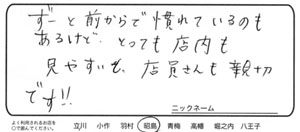 ずーと前からで慣れているのも
あるけど、とっても店内も
見やすいし、店員さんも親切
です!!
ニックネーム
よく利用されるお店を
○で囲んでください。 立川 小作 羽村 昭島 青梅 高幡 堀之内 八王子